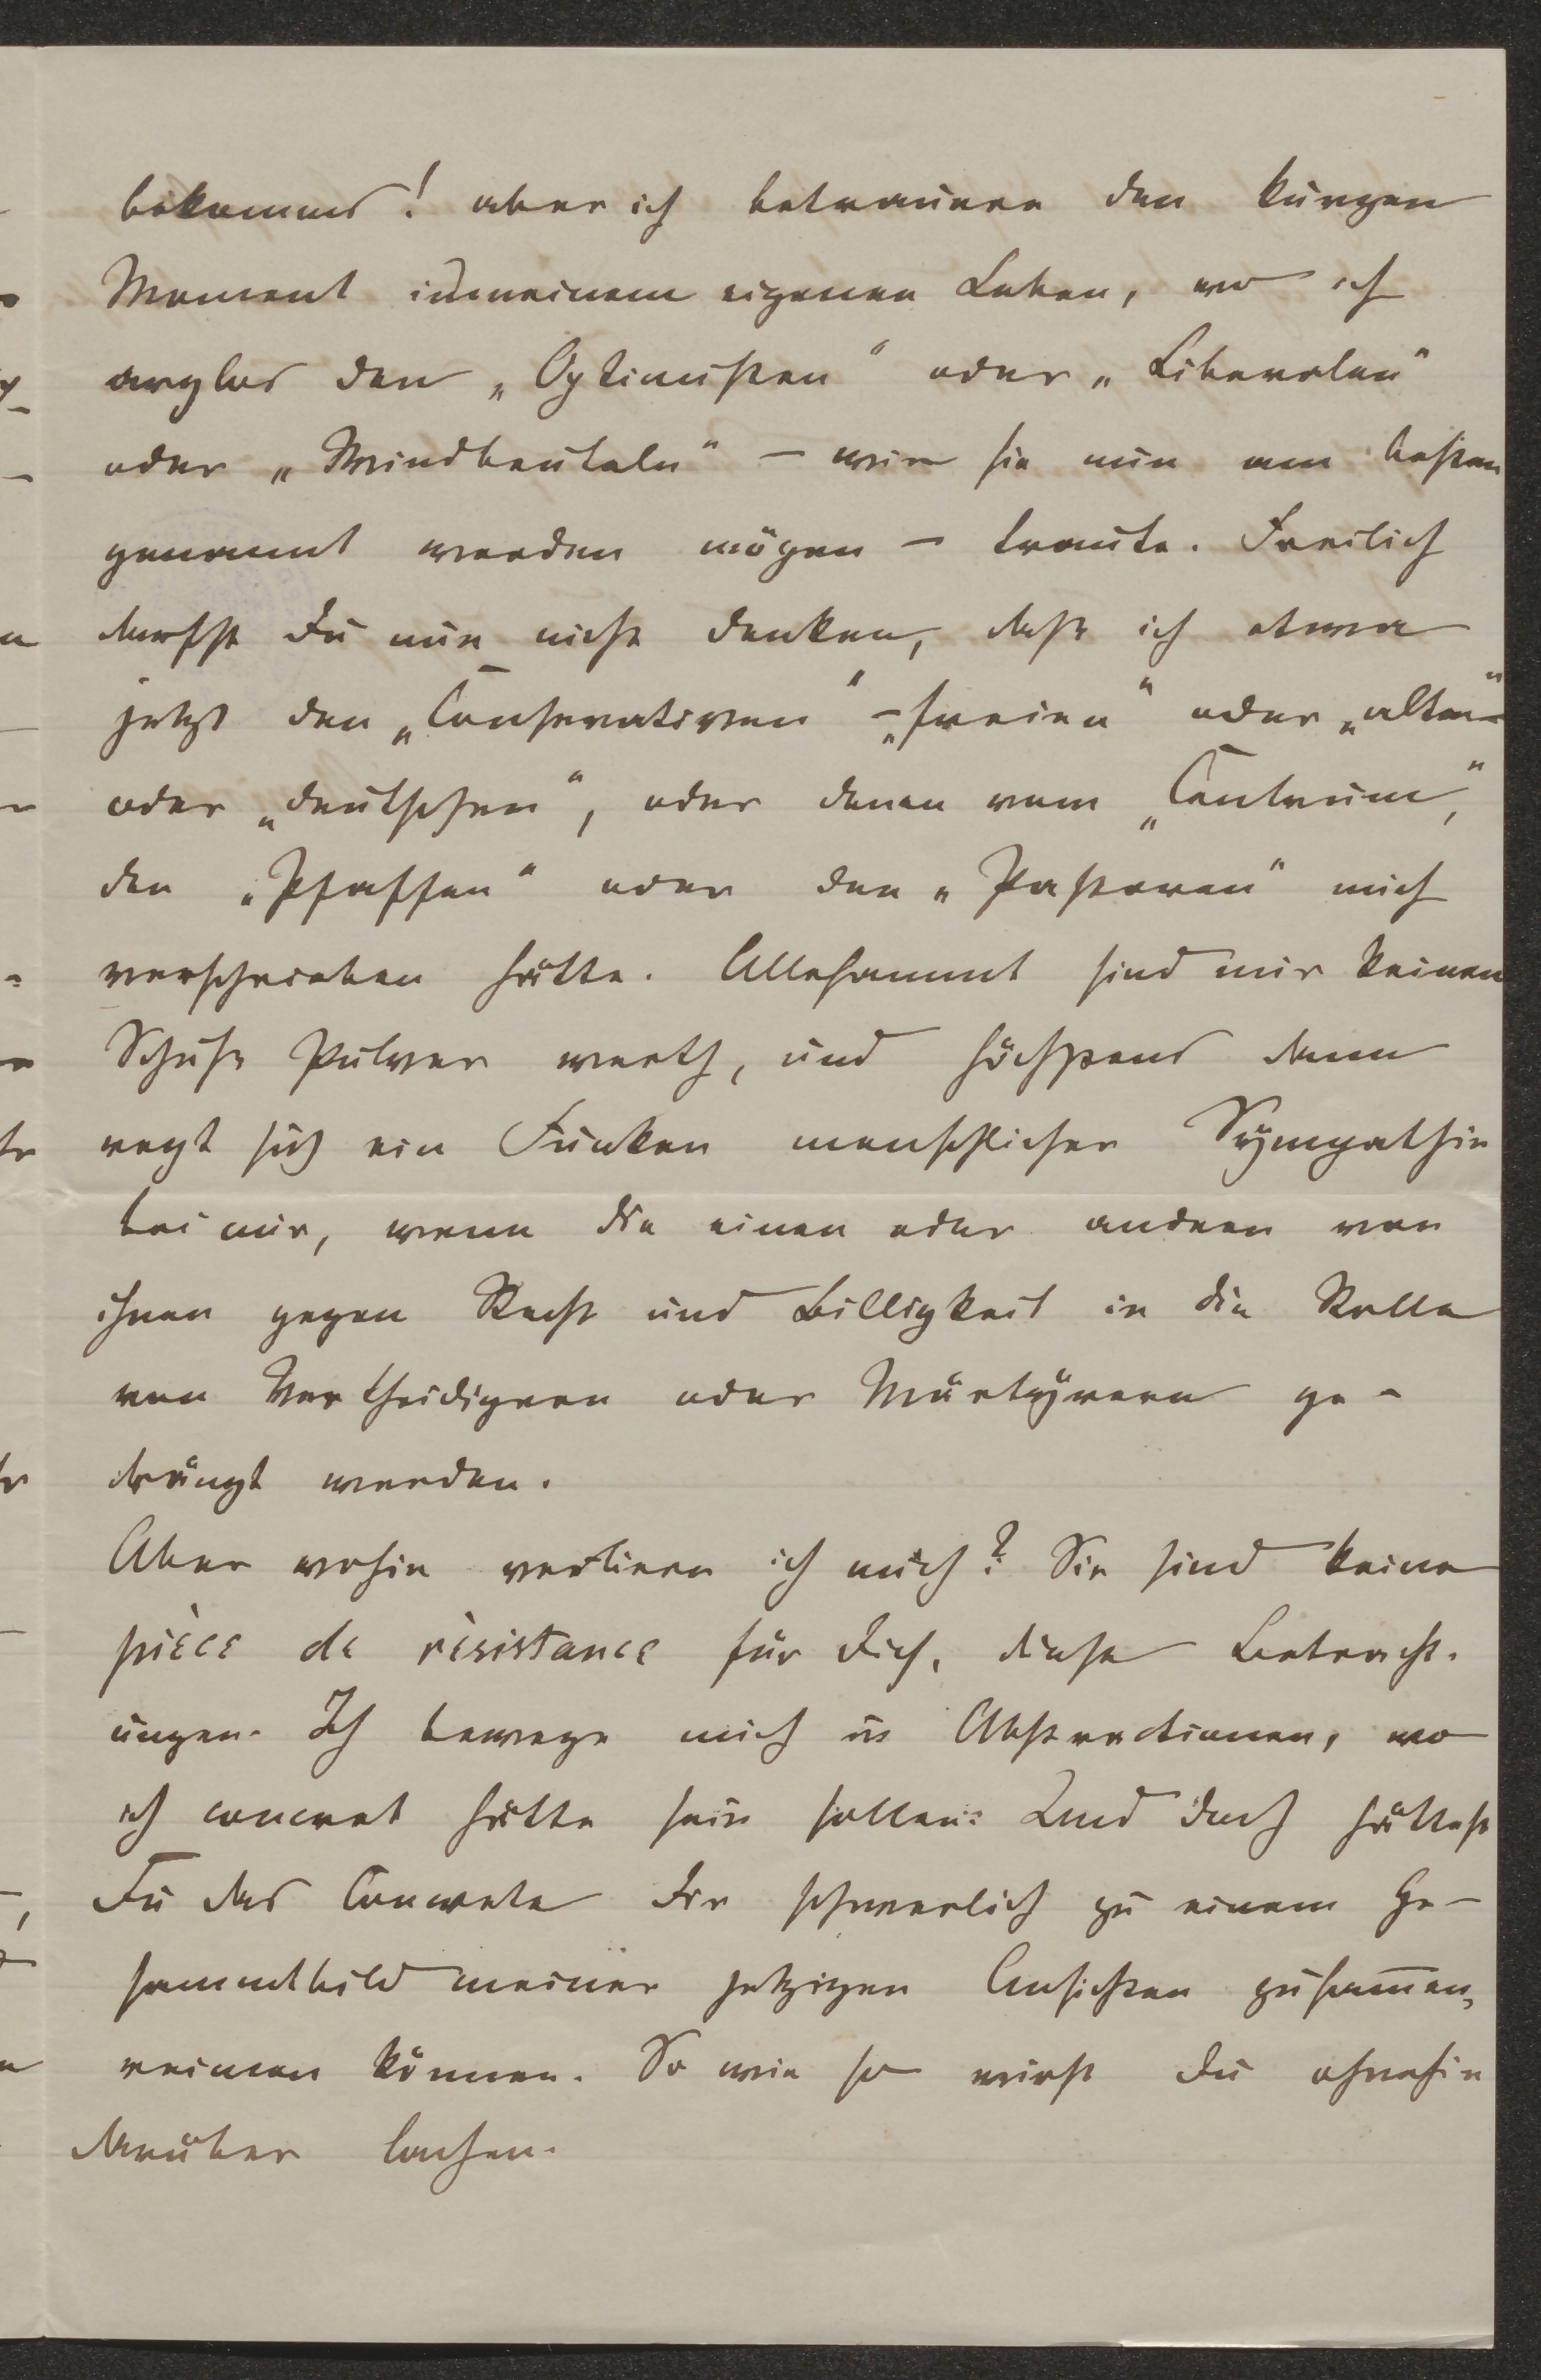 bekomms! aber ich betrauere den kurzen
Moment in meinem eigenen Leben, wo ich
arglos den „Optimisten“ oder „Liberalen“
oder „Windbeuteln“ – wie sie nun am besten
genannt werden mögen – traute. Freilich
darfst Du nun nicht denken, daß ich etwa
jetzt den „Conservativen“ – „freien“ oder „alten“
oder „deutschen“, oder denen vom „Centrum“,
den „Pfaffen“ oder den „Pastoren“ mich
verschrieben hätte. Allesammt sind mir keinen
Schuß Pulver werth, und höchstens dann
regt sich ein Funken menschlicher Sympathie
bei mir, wenn die einen oder andern von
ihnen gegen Recht und Billigkeit in die Rolle
von Vertheidigern oder Märtyrern ge-
drängt werden.
Aber wohin verliere ich mich? Sie sind keine
pièce de rèsistance für Dich, diese Betracht-
ungen. Ich bewege mich in Abstractionen, wo
ich concret hätte sein sollen. Und doch hättest
Du das Concrete Dir schwerlich zu einem Ge-
sammtbild meiner jetzigen Ansichten zusam̅en-
reimen können. So wie so wirst Du ohnehin
darüber lachen.